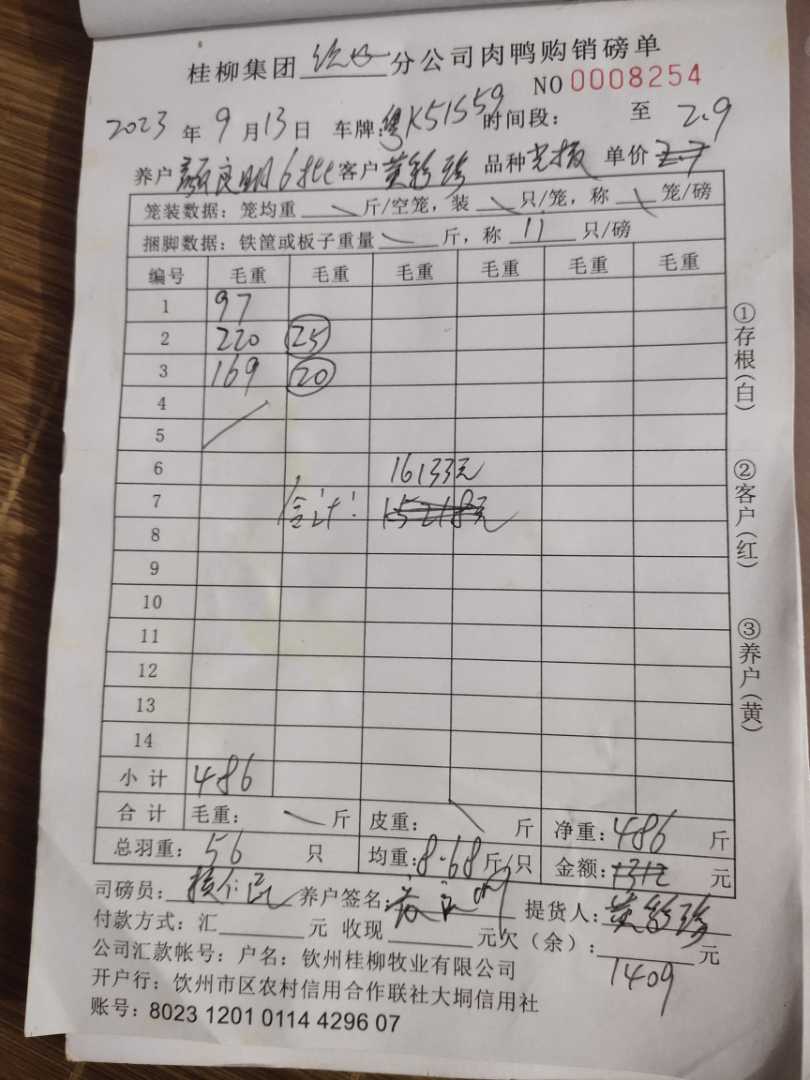 桂柳集团 分公司肉鸭购销磅单
NO 0008254
2023 年 9 月 13 日 车牌: 粤K51S59 时间段: 至 2.9
养户 颜良明 6批 客户 黄彩珍 品种 单价 2.7
笼装数据: 笼均重 斤/空笼, 装 只/笼, 称 笼/磅
捆脚数据: 铁筐或板子重量 斤, 称 11 只/磅
编号 毛重 毛重 毛重 毛重 毛重 毛重
1 97
2 220 25
3 169 20
4
5
6 16133元
7 合计: 15218元
8
9
10
11
12
13
14
小计 486
合计 毛重: 斤 皮重: 斤 净重: 486 斤
总羽重: 56 只 均重: 8.68 斤/只 金额: 1312 元
司磅员: 养户签名: 提货人: 黄彩珍
付款方式: 汇 元 收现 元欠(余): 元
1409
公司汇款帐号: 户名: 钦州桂柳牧业有限公司
开户行: 饮州市区农村信用合作联社大垌信用社
账号: 8023 1201 0114 4296 07
①存根(白)
②客户(红)
③养户(黄)